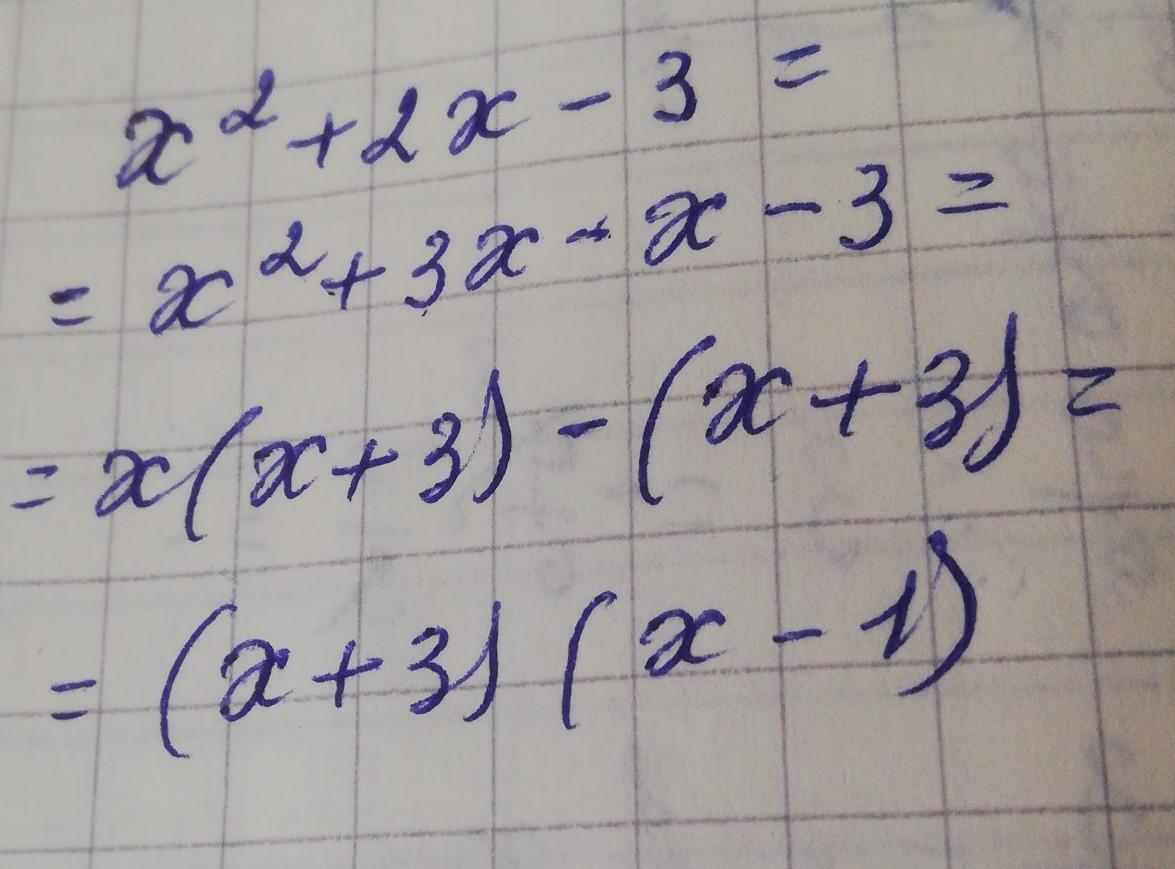 x² + 2x - 3 =
= x² + 3x - x - 3 =
= x(x+3) - (x+3) =
= (x+3)(x-1)